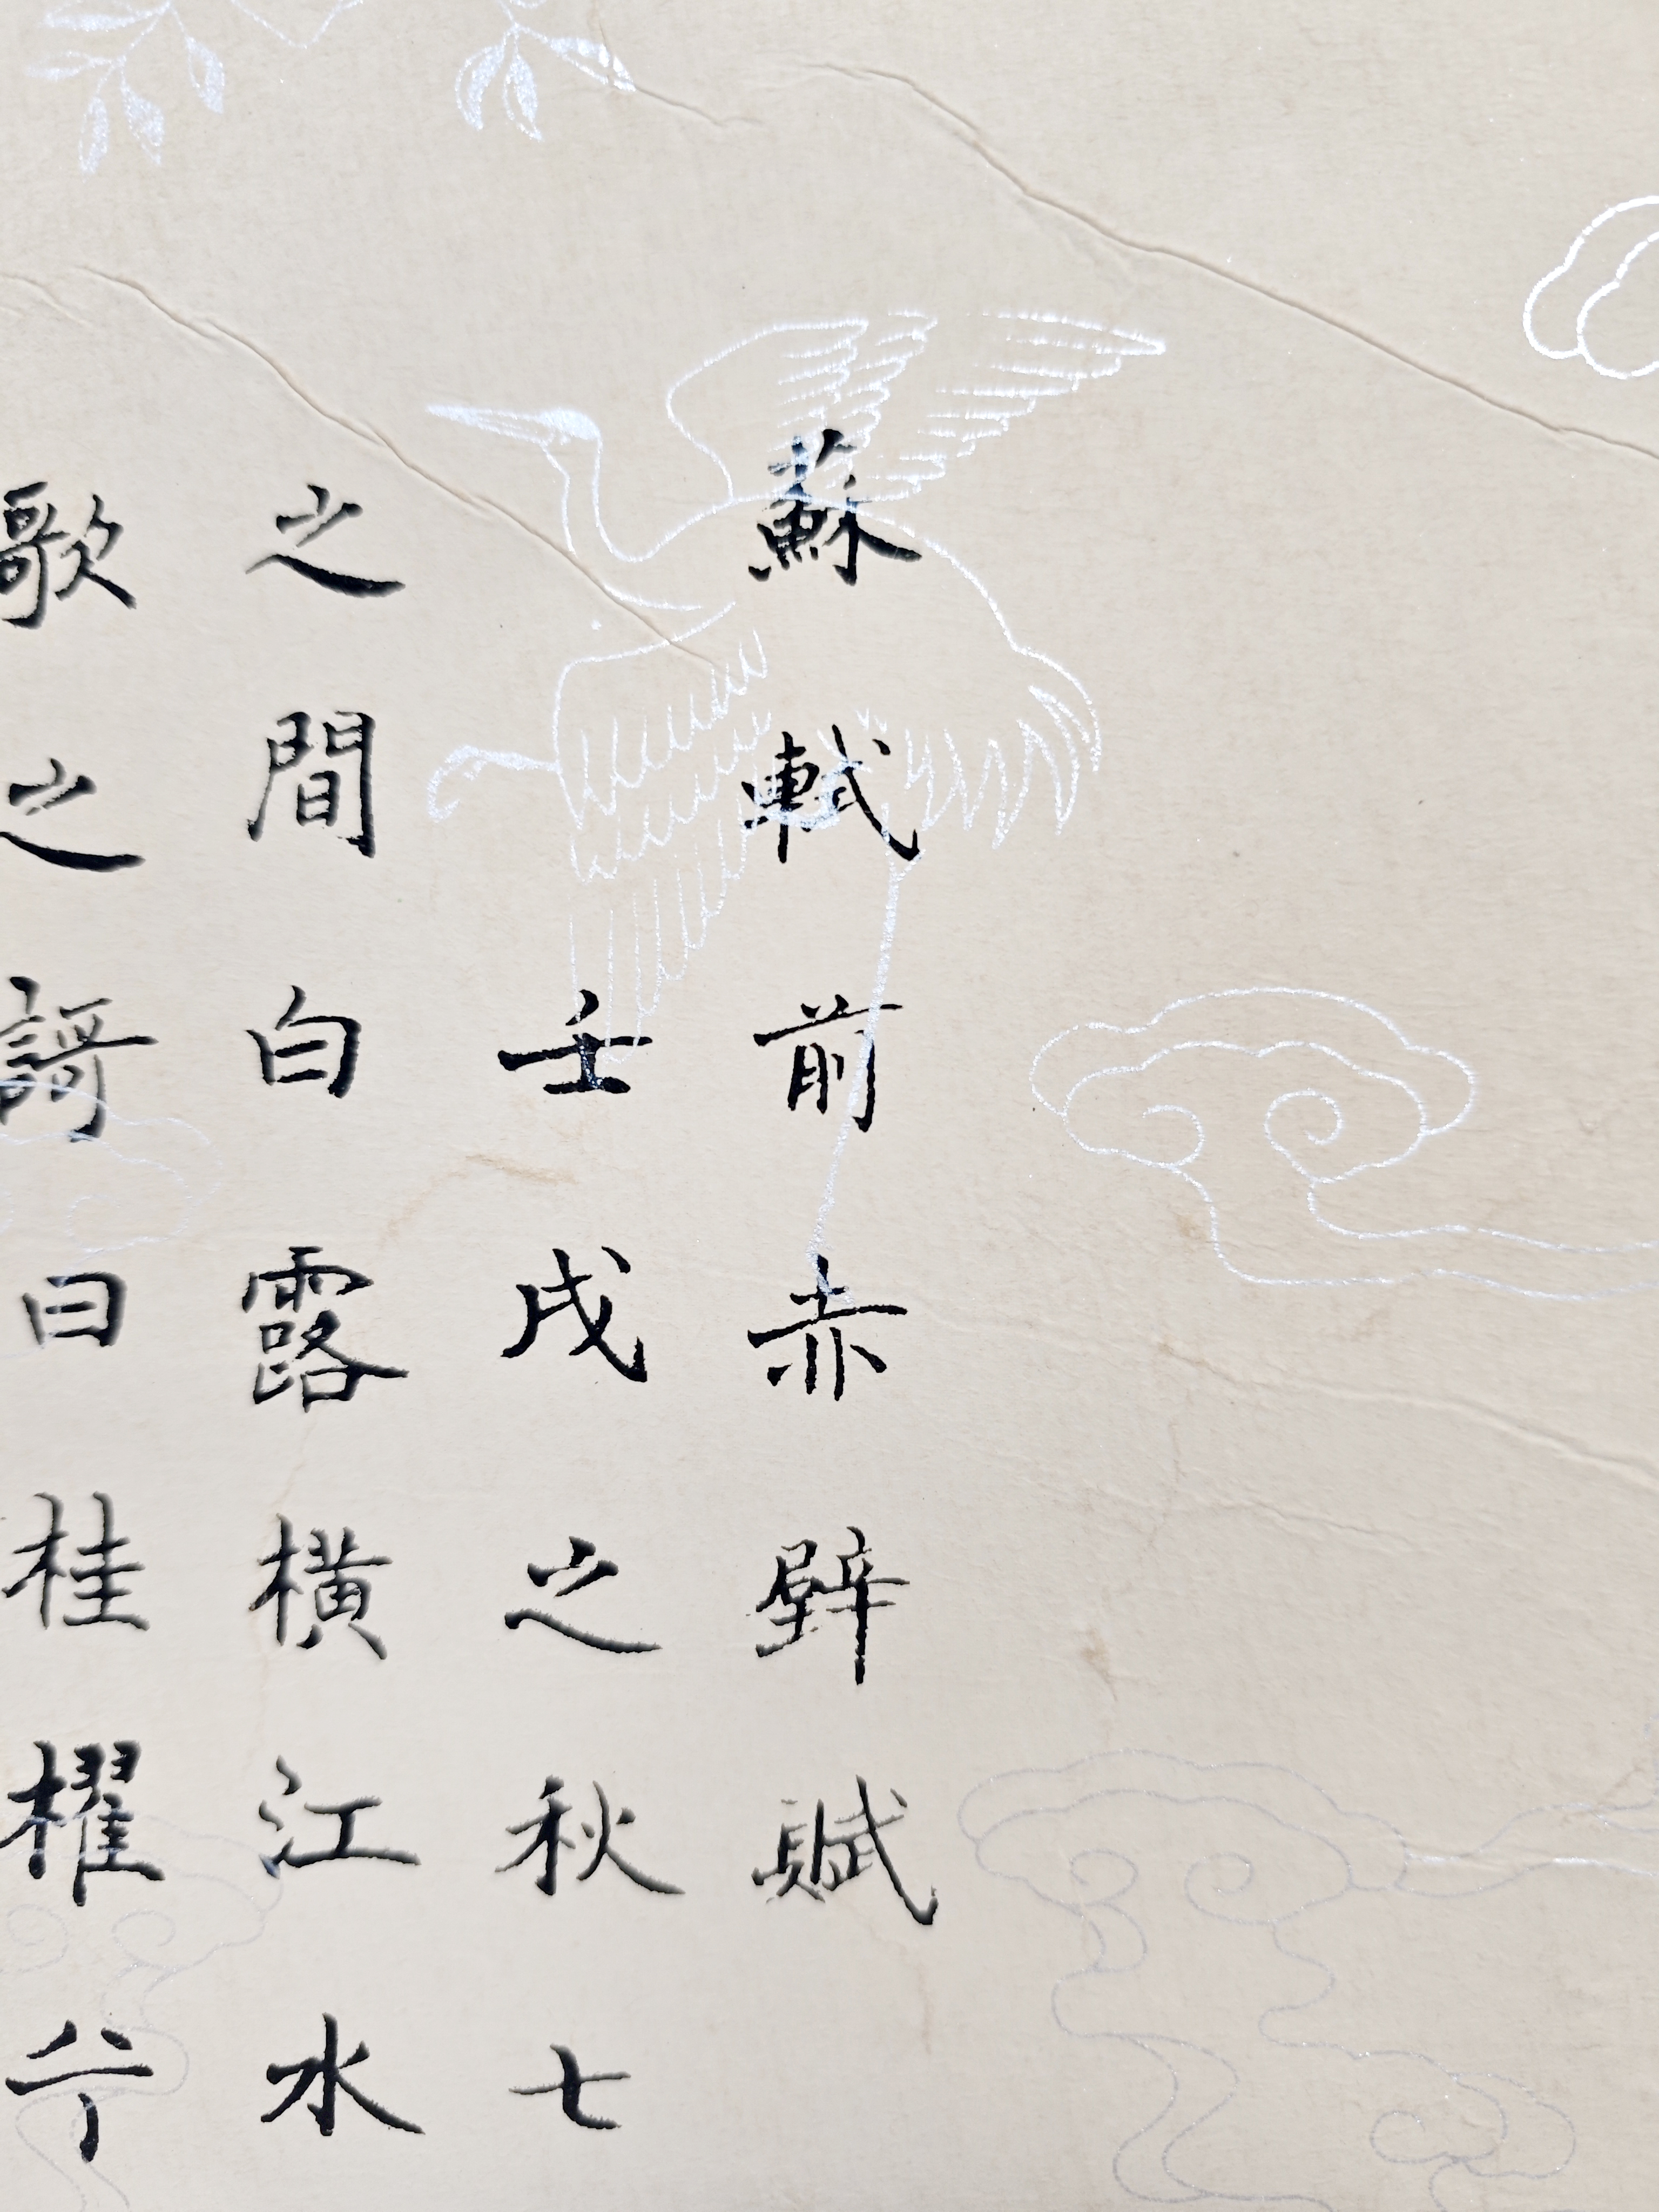 蘇軾前赤壁賦
壬戌之秋七
之間白露橫江水
歌之謌曰桂櫂兮